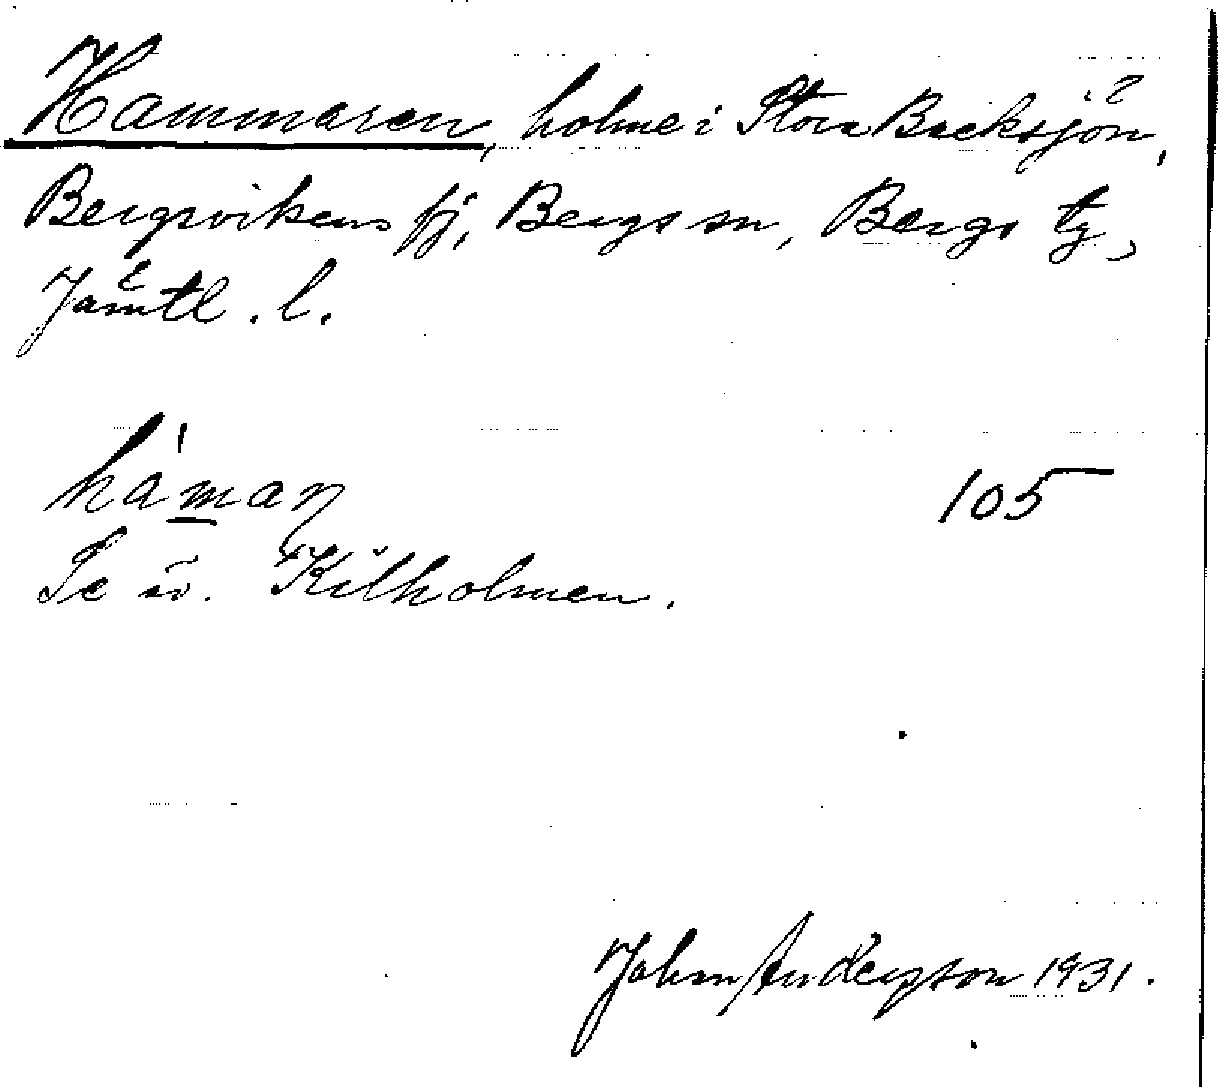 Hammaren, holme i Stora Backsjön,
Bergsvikens fj, Bergs sn, Bergs tg,
Jämtl. l.
hàman 105
Se äv. Kilholmen.
John Anderson 1931.